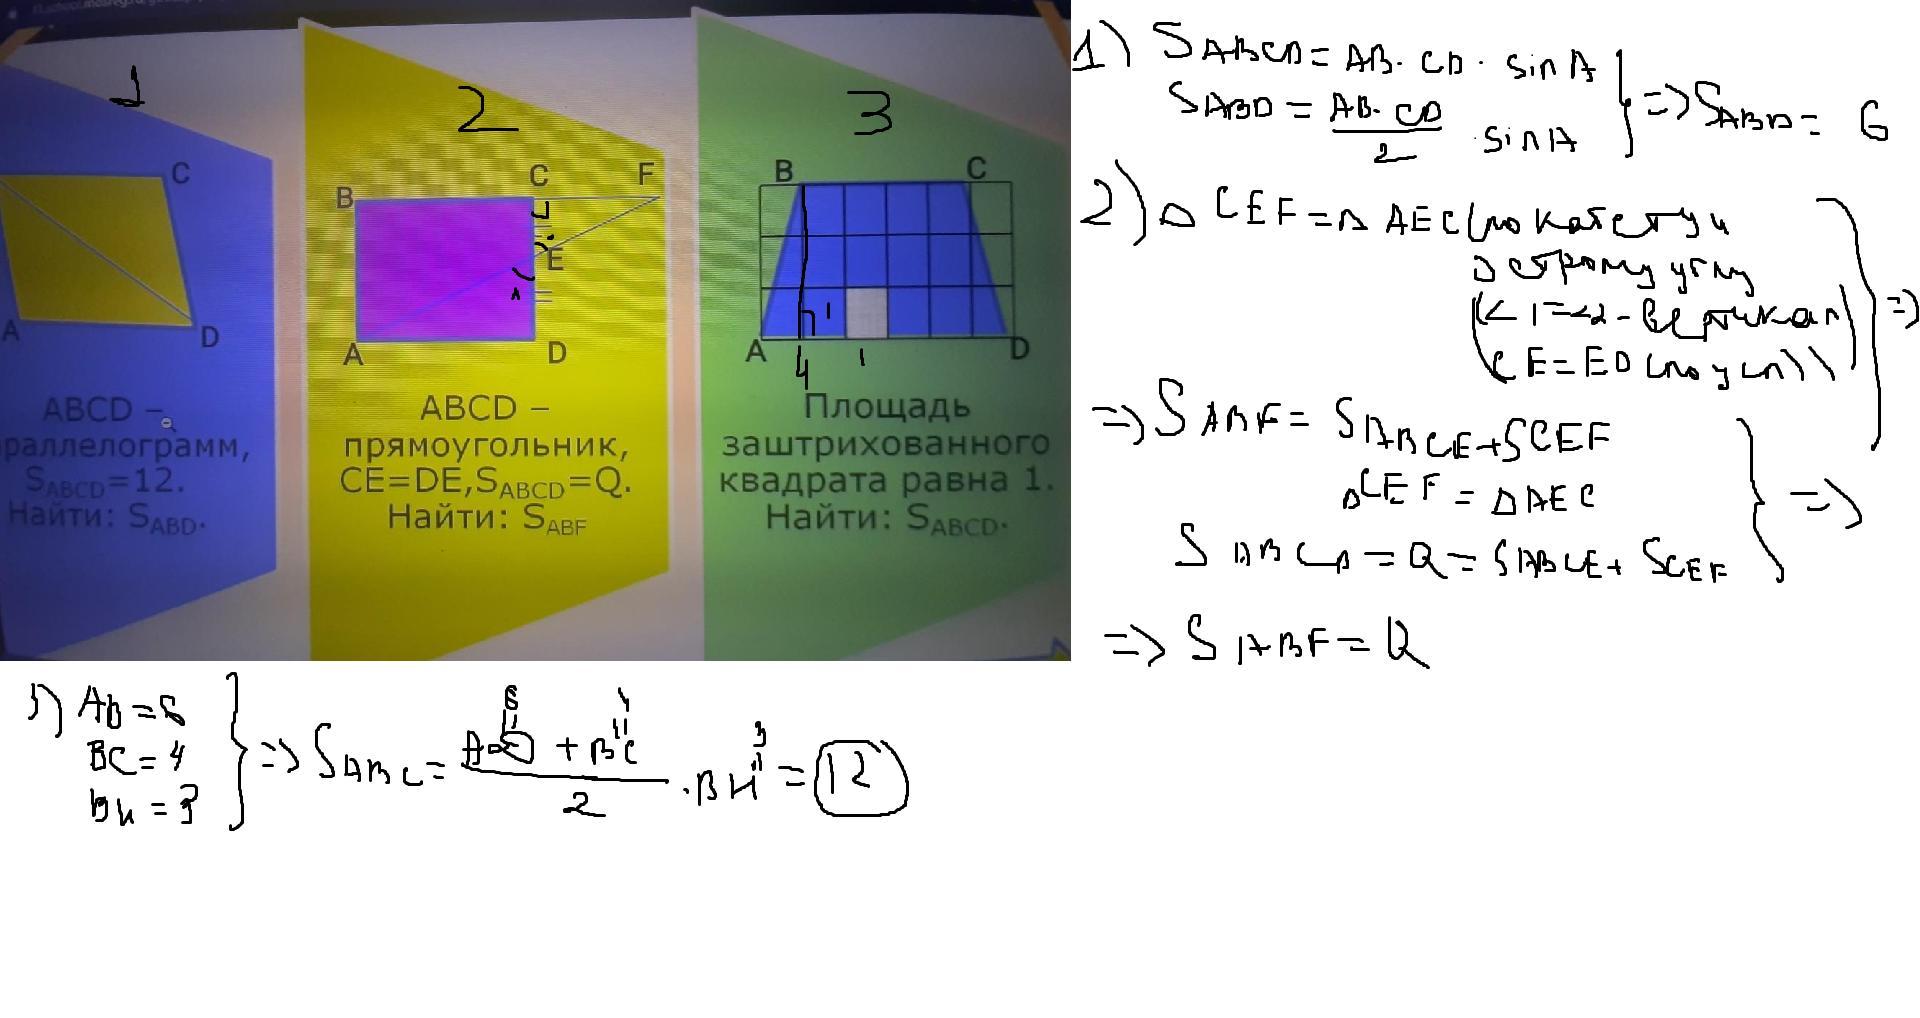 1
C
A
D
ABCD –
раллелограмм,
SABCD=12.
Найти: SABD.
2
B
C
F
E
A
D
ABCD –
прямоугольник,
CE=DE,SABCD=Q.
Найти: SABF
3
B
C
1
A
D
4
1
Площадь
заштрихованного
квадрата равна 1.
Найти: SABCD.
1) SABCD = AB · CD · sin A
SABD = AB · CD / 2 · sin A } => SABD = 6
2) ▵ CEF = ▵ AEC (по катету и
острому углу
(<1=<2 - вертикал
CE = ED (по усл)) =>
=> SABF = SABCE + SCEF
▵CEF = ▵AEC
SABCD = Q = SABCE + SCEF } =>
=> SABF = Q
3) AD = 6
BC = 4
BH = 3 } => SABC = AD + BC / 2 · BH = 12